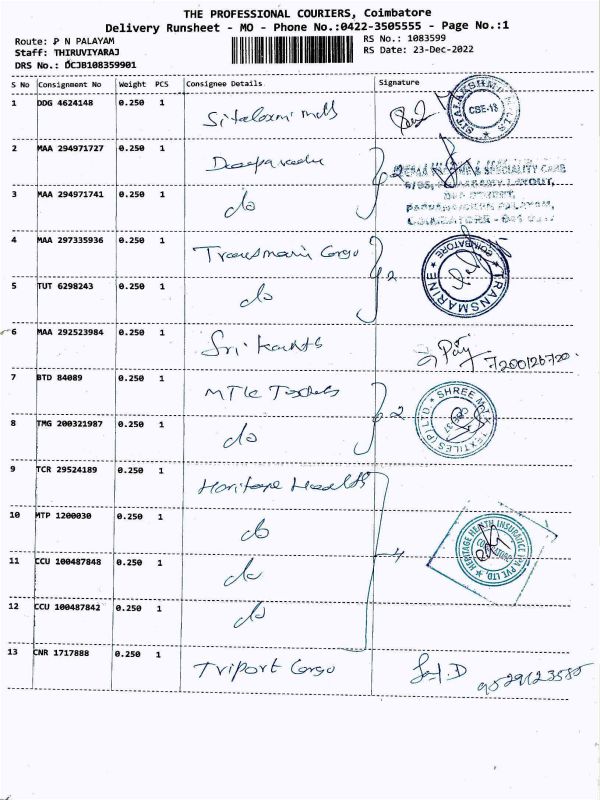 THE PROFESSIONAL COURIERS, Coimbatore
Delivery Runsheet - MO - Phone No.:0422-3505555 - Page No.:1
Route: P N PALAYAM RS No.: 1083599
Staff: THIRUVIYARAJ RS Date: 23-Dec-2022
DRS No.: DCJB108359901
S No Consignment No Weight PCS Consignee Details Signature
1 DDG 4624148 0.250 1 Sitalaxmi mills
SITALAKSHMI MILLS CBE-18
2 MAA 294971727 0.250 1 2
& SPECIALITY CARE
LAYOUT,
3 MAA 294971741 0.250 1 do
PALAYAM,
COIMBATORE
4 MAA 297335936 0.250 1 Transmarine Cargo 2
TRANSMARINE COIMBATORE
5 TUT 6298243 0.250 1 do
6 MAA 292523984 0.250 1 Sri 7200126720
7 BTD 84089 0.250 1 2
SHREE TEXTILES (P) LTD.
8 TMG 200321987 0.250 1 do
9 TCR 29524189 0.250 1 Heritage Health
10 MTP 1200030 0.250 1 do
HERITAGE HEALTH INSURANCE TPA PVT. LTD. COIMBATORE
11 CCU 100487848 0.250 1 do 4
12 CCU 100487842 0.250 1 do
13 CNR 1717888 0.250 1 Triport Cargo